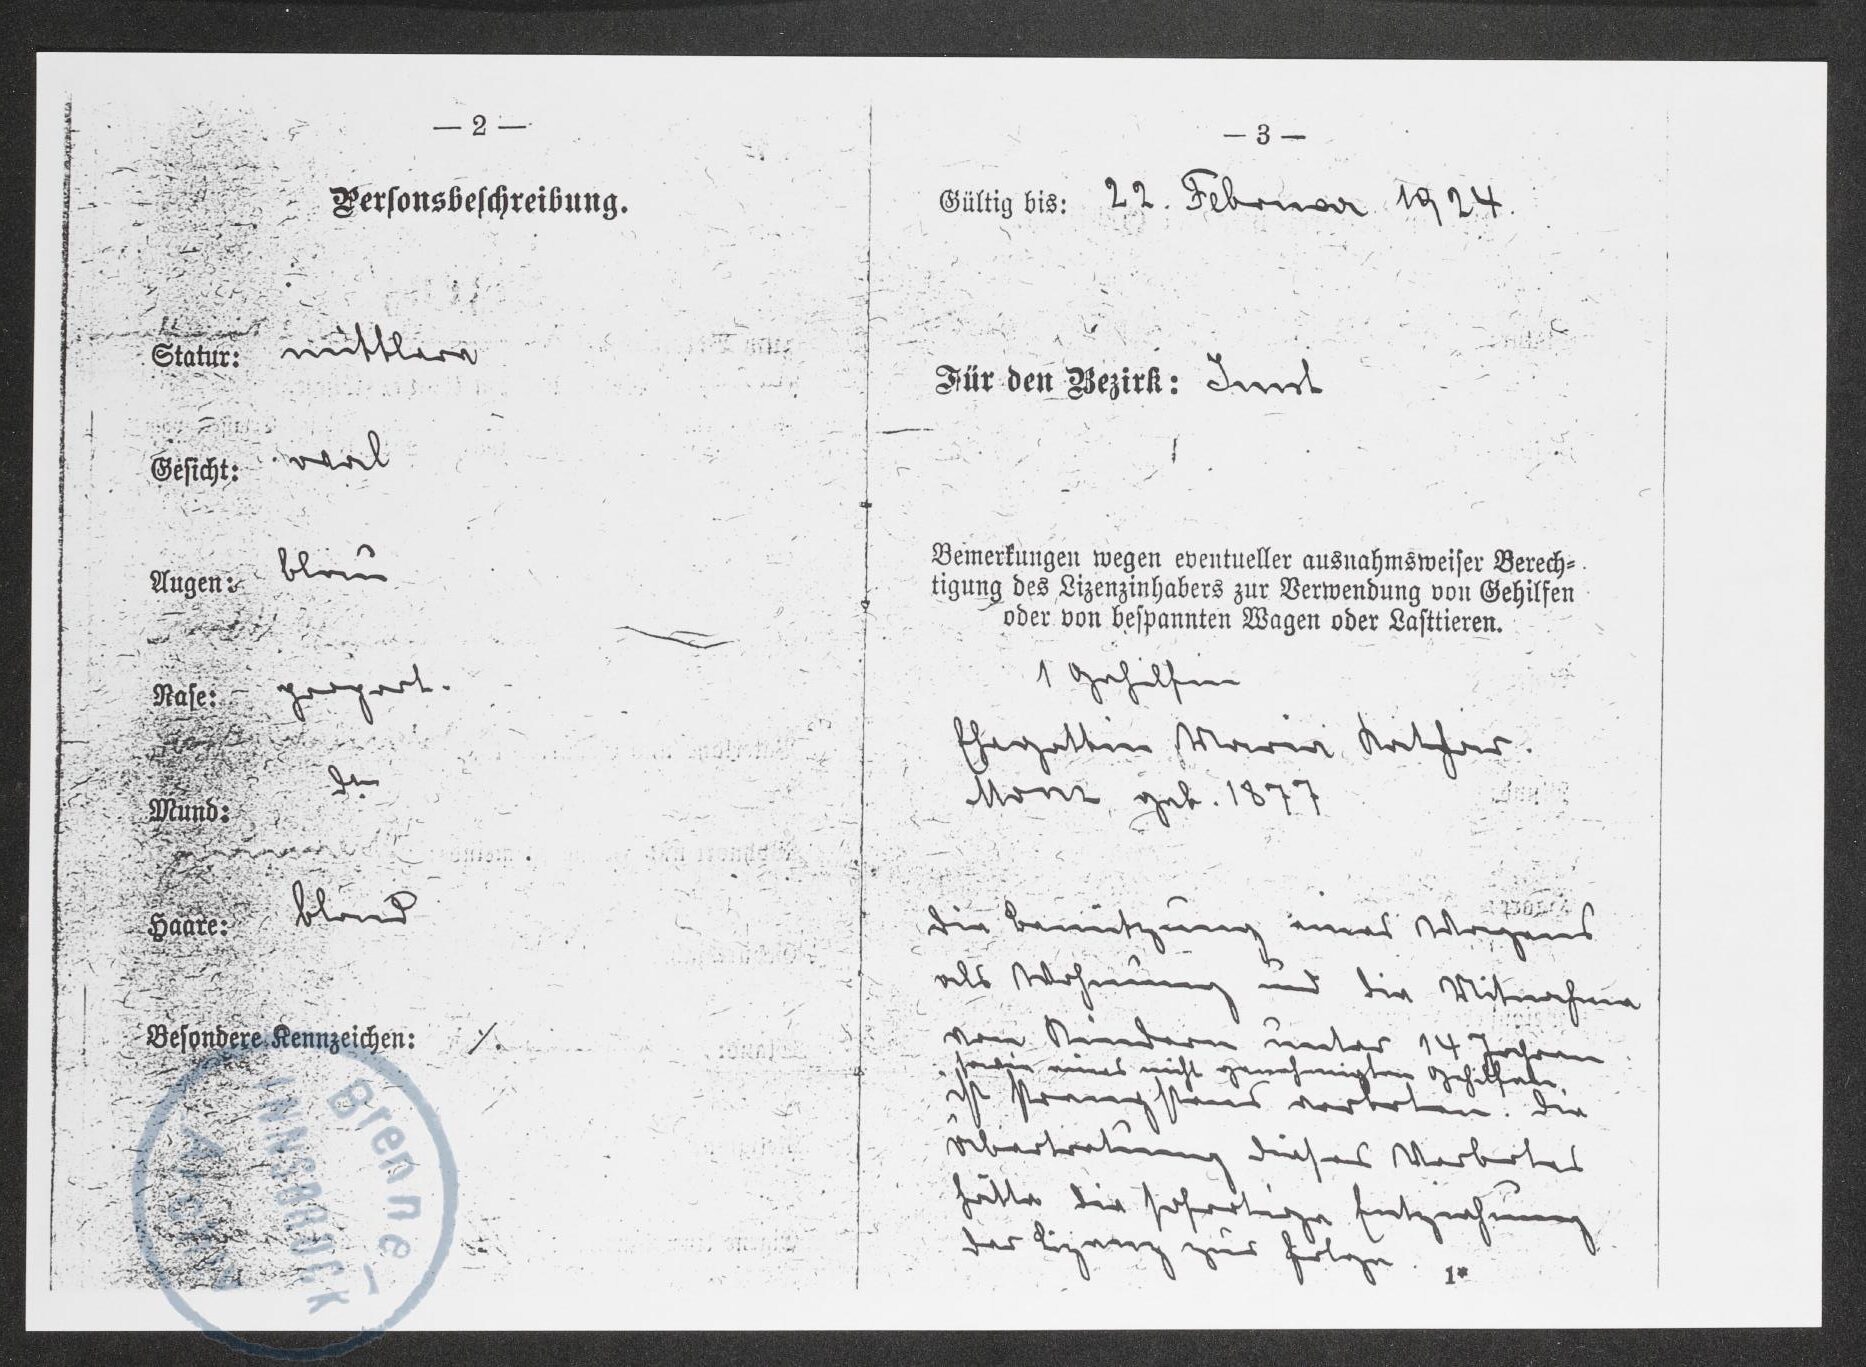 — 2 —
Personsbeschreibung.
Statur: mittlere
Gesicht: oval
Augen: blau
Nase: proport.
Mund: do
Haare: blond
Besondere Kennzeichen: ./.
Brenner-
Archiv
INNSBRUCK
— 3 —
Gültig bis: 22. Februar 1924.
Für den Bezirk: Imst
Bemerkungen wegen eventueller ausnahmsweiser Berech-
tigung des Lizenzinhabers zur Verwendung von Gehilfen
oder von bespannten Wagen oder Lasttieren.
1 Gehilfin
Ehegattin Maria Kathar.
Monz geb. 1877
Die Benützung eines Wagens
als Wohnung und die Mitnahme
von Kindern unter 14 Jahren
sowie eines nicht genehmigten Gehilfen,
ist strengstens verboten. Die
Übertretung dieses Verbotes
hätte die sofortige Entziehung
der Lizenz zur Folge
1*